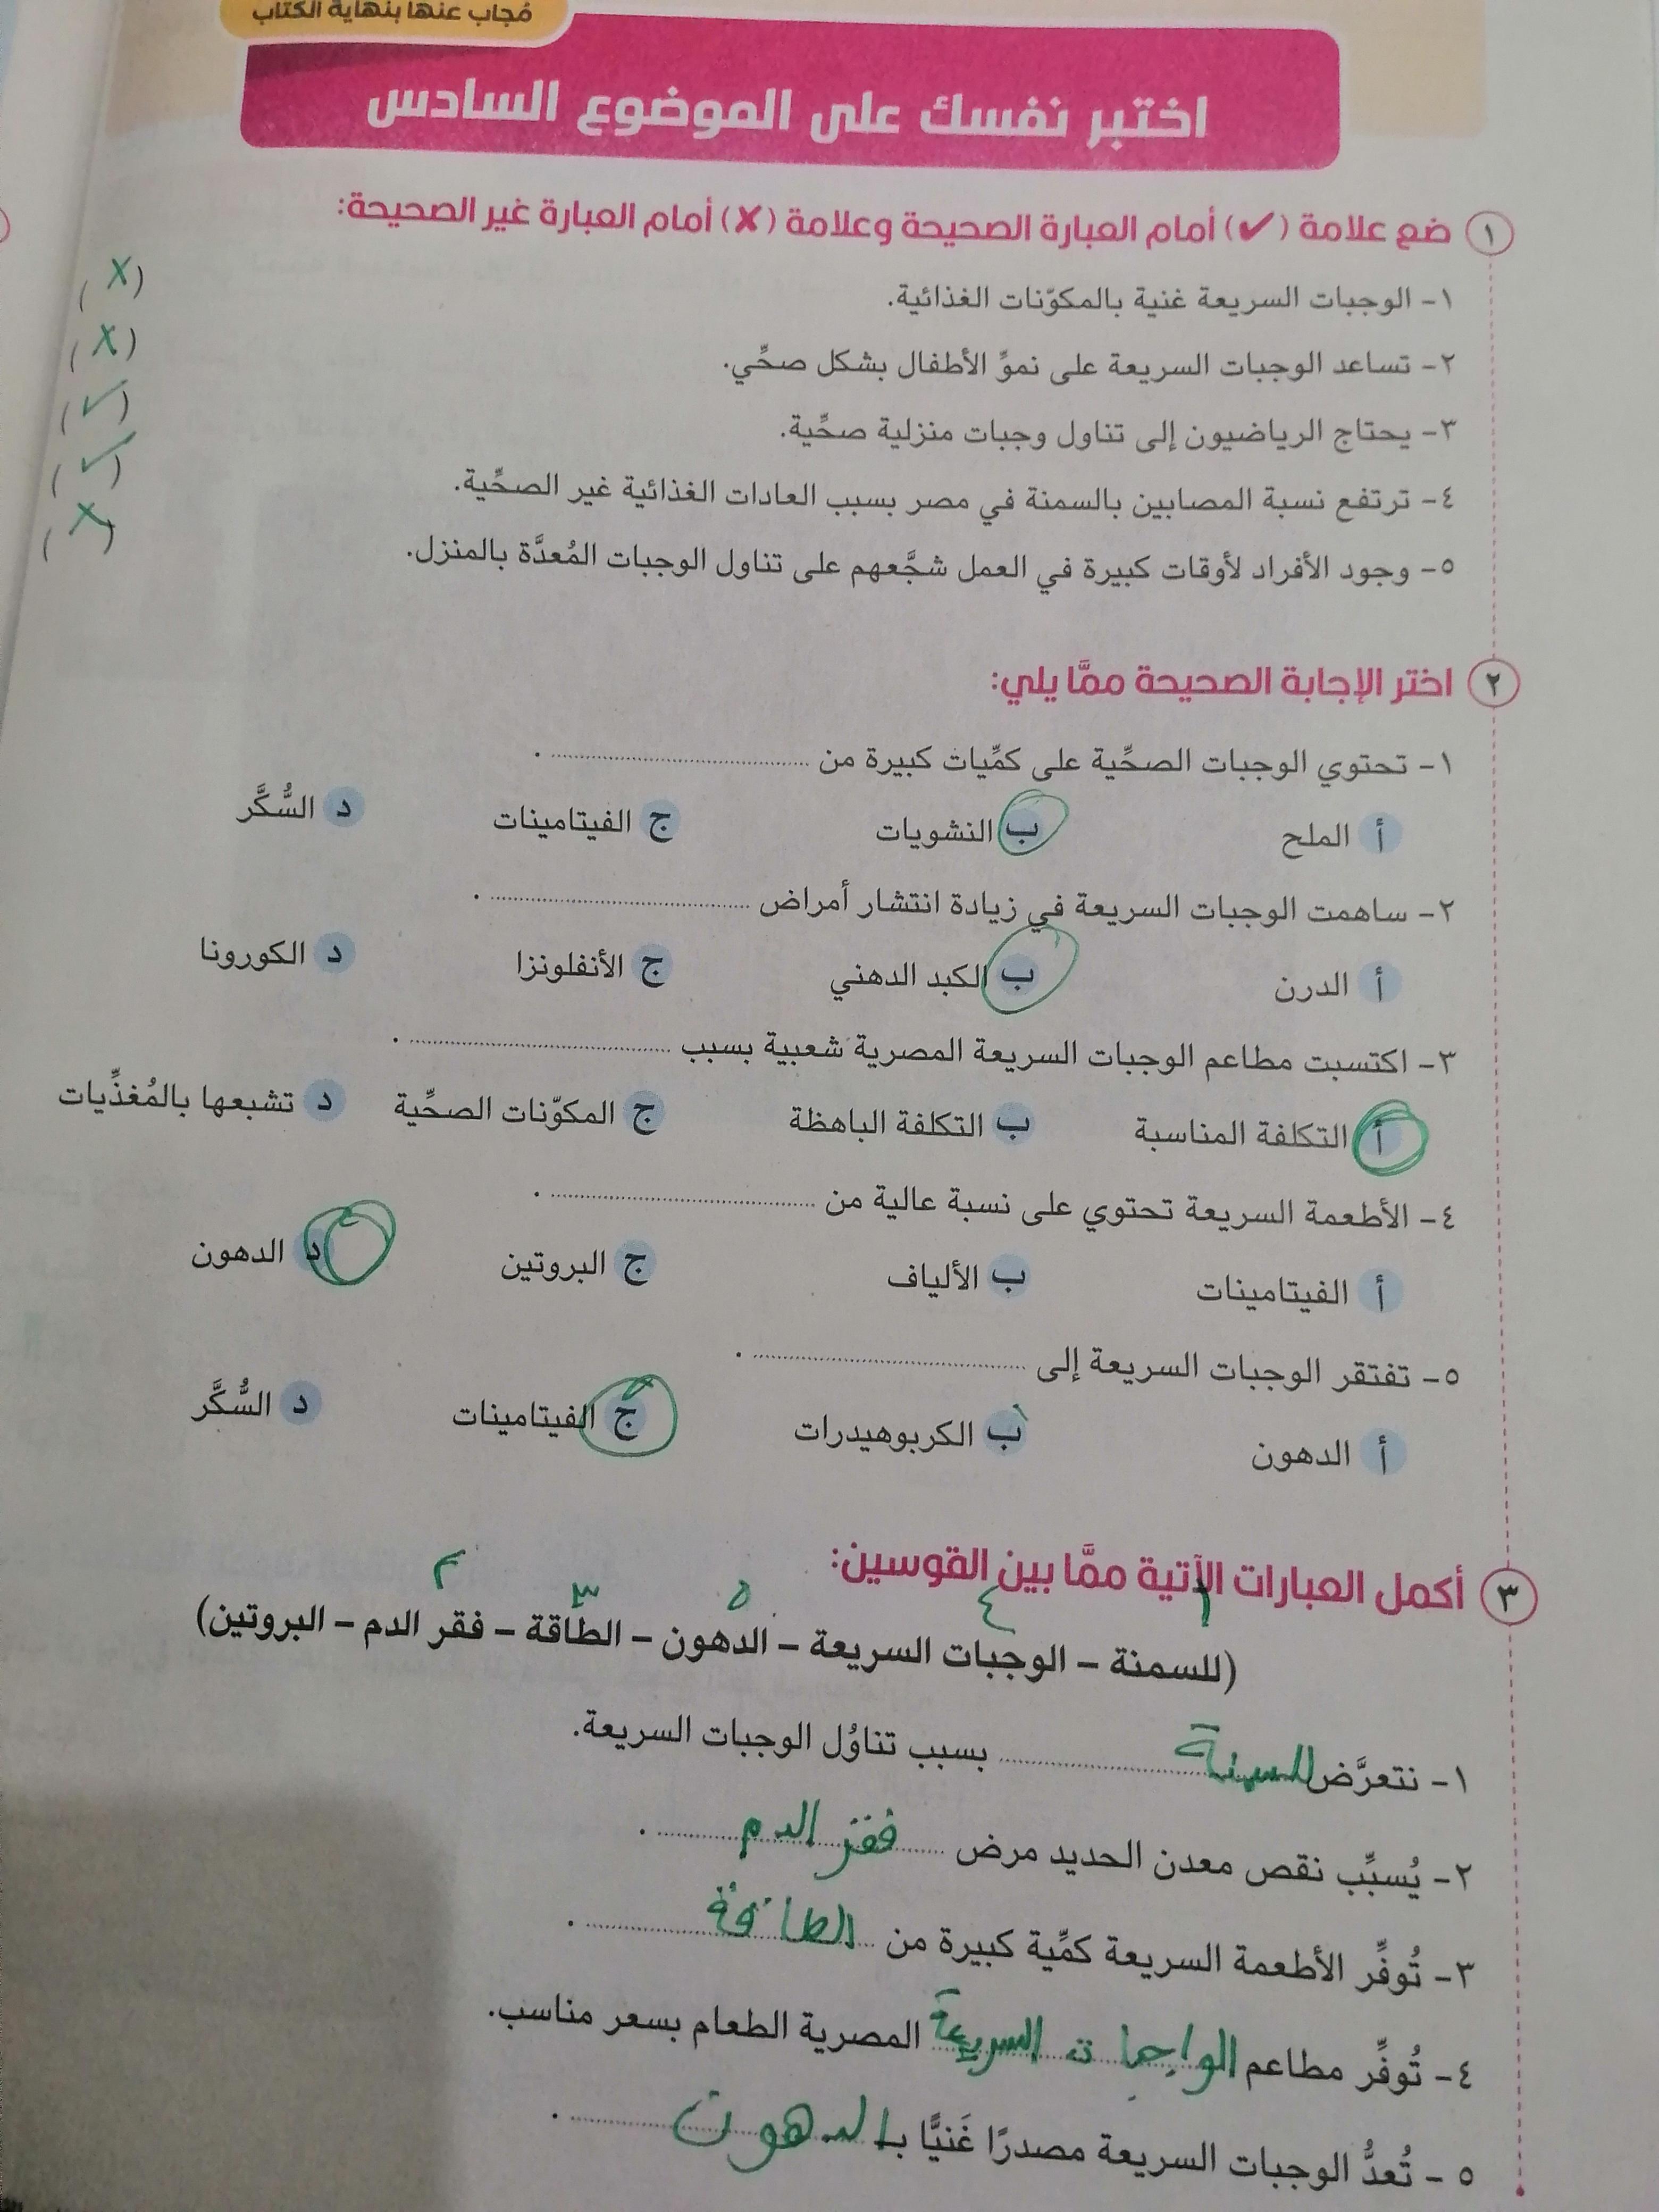 مُجاب عنها بنهاية الكتاب
اختبر نفسك على الموضوع السادس
١ ضع علامة (✔) أمام العبارة الصحيحة وعلامة (✘) أمام العبارة غير الصحيحة:
١- الوجبات السريعة غنية بالمكوّنات الغذائية. (X)
٢- تساعد الوجبات السريعة على نموِّ الأطفال بشكل صحِّي. (X)
٣- يحتاج الرياضيون إلى تناول وجبات منزلية صحِّية. (✓)
٤- ترتفع نسبة المصابين بالسمنة في مصر بسبب العادات الغذائية غير الصحِّية. (✓)
٥- وجود الأفراد لأوقات كبيرة في العمل شجَّعهم على تناول الوجبات المُعدَّة بالمنزل. (X)
٢ اختر الإجابة الصحيحة ممَّا يلي:
١- تحتوي الوجبات الصحِّية على كمِّيات كبيرة من ............ .
أ الملح ب النشويات ج الفيتامينات د السُّكَّر
٢- ساهمت الوجبات السريعة في زيادة انتشار أمراض ............ .
أ الدرن ب الكبد الدهني ج الأنفلونزا د الكورونا
٣- اكتسبت مطاعم الوجبات السريعة المصرية شعبية بسبب ............ .
أ التكلفة المناسبة ب التكلفة الباهظة ج المكوّنات الصحِّية د تشبعها بالمُغذِّيات
٤- الأطعمة السريعة تحتوي على نسبة عالية من ............ .
أ الفيتامينات ب الألياف ج البروتين د الدهون
٥- تفتقر الوجبات السريعة إلى ............ .
أ الدهون ب الكربوهيدرات ج الفيتامينات د السُّكَّر
٣ أكمل العبارات الآتية ممَّا بين القوسين:
١ ٤ ٥ ٣ ٢
(للسمنة – الوجبات السريعة – الدهون – الطاقة – فقر الدم – البروتين)
١- نتعرَّض للسمنة ............ بسبب تناوُل الوجبات السريعة.
٢- يُسبِّب نقص معدن الحديد مرض فقر الدم ............ .
٣- تُوفِّر الأطعمة السريعة كمِّية كبيرة من الطاقة ............ .
٤- تُوفِّر مطاعم الواجبات السريعة المصرية الطعام بسعر مناسب.
٥- تُعدُّ الوجبات السريعة مصدرًا غَنيًّا بـ الدهون ............ .